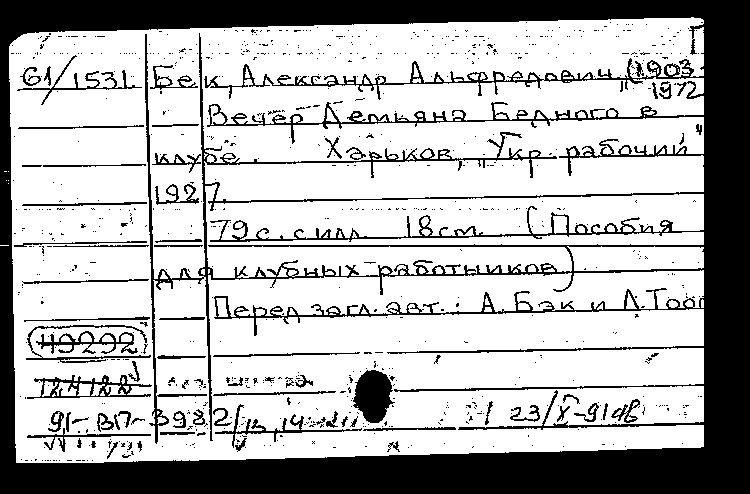 61/1531 Бек, Александр Альфредович, (1903-
1972
Вечер Демьяна Бедного в
клубе. Харьков, "Укр. рабочий",
1927.
79 с. с илл. 18 см. (Пособия
для клубных работников)
Перед загл. авт.: А. Бэк и Л. Тоом
49292
124122
91-ВП-3982/13,14 23/X-91